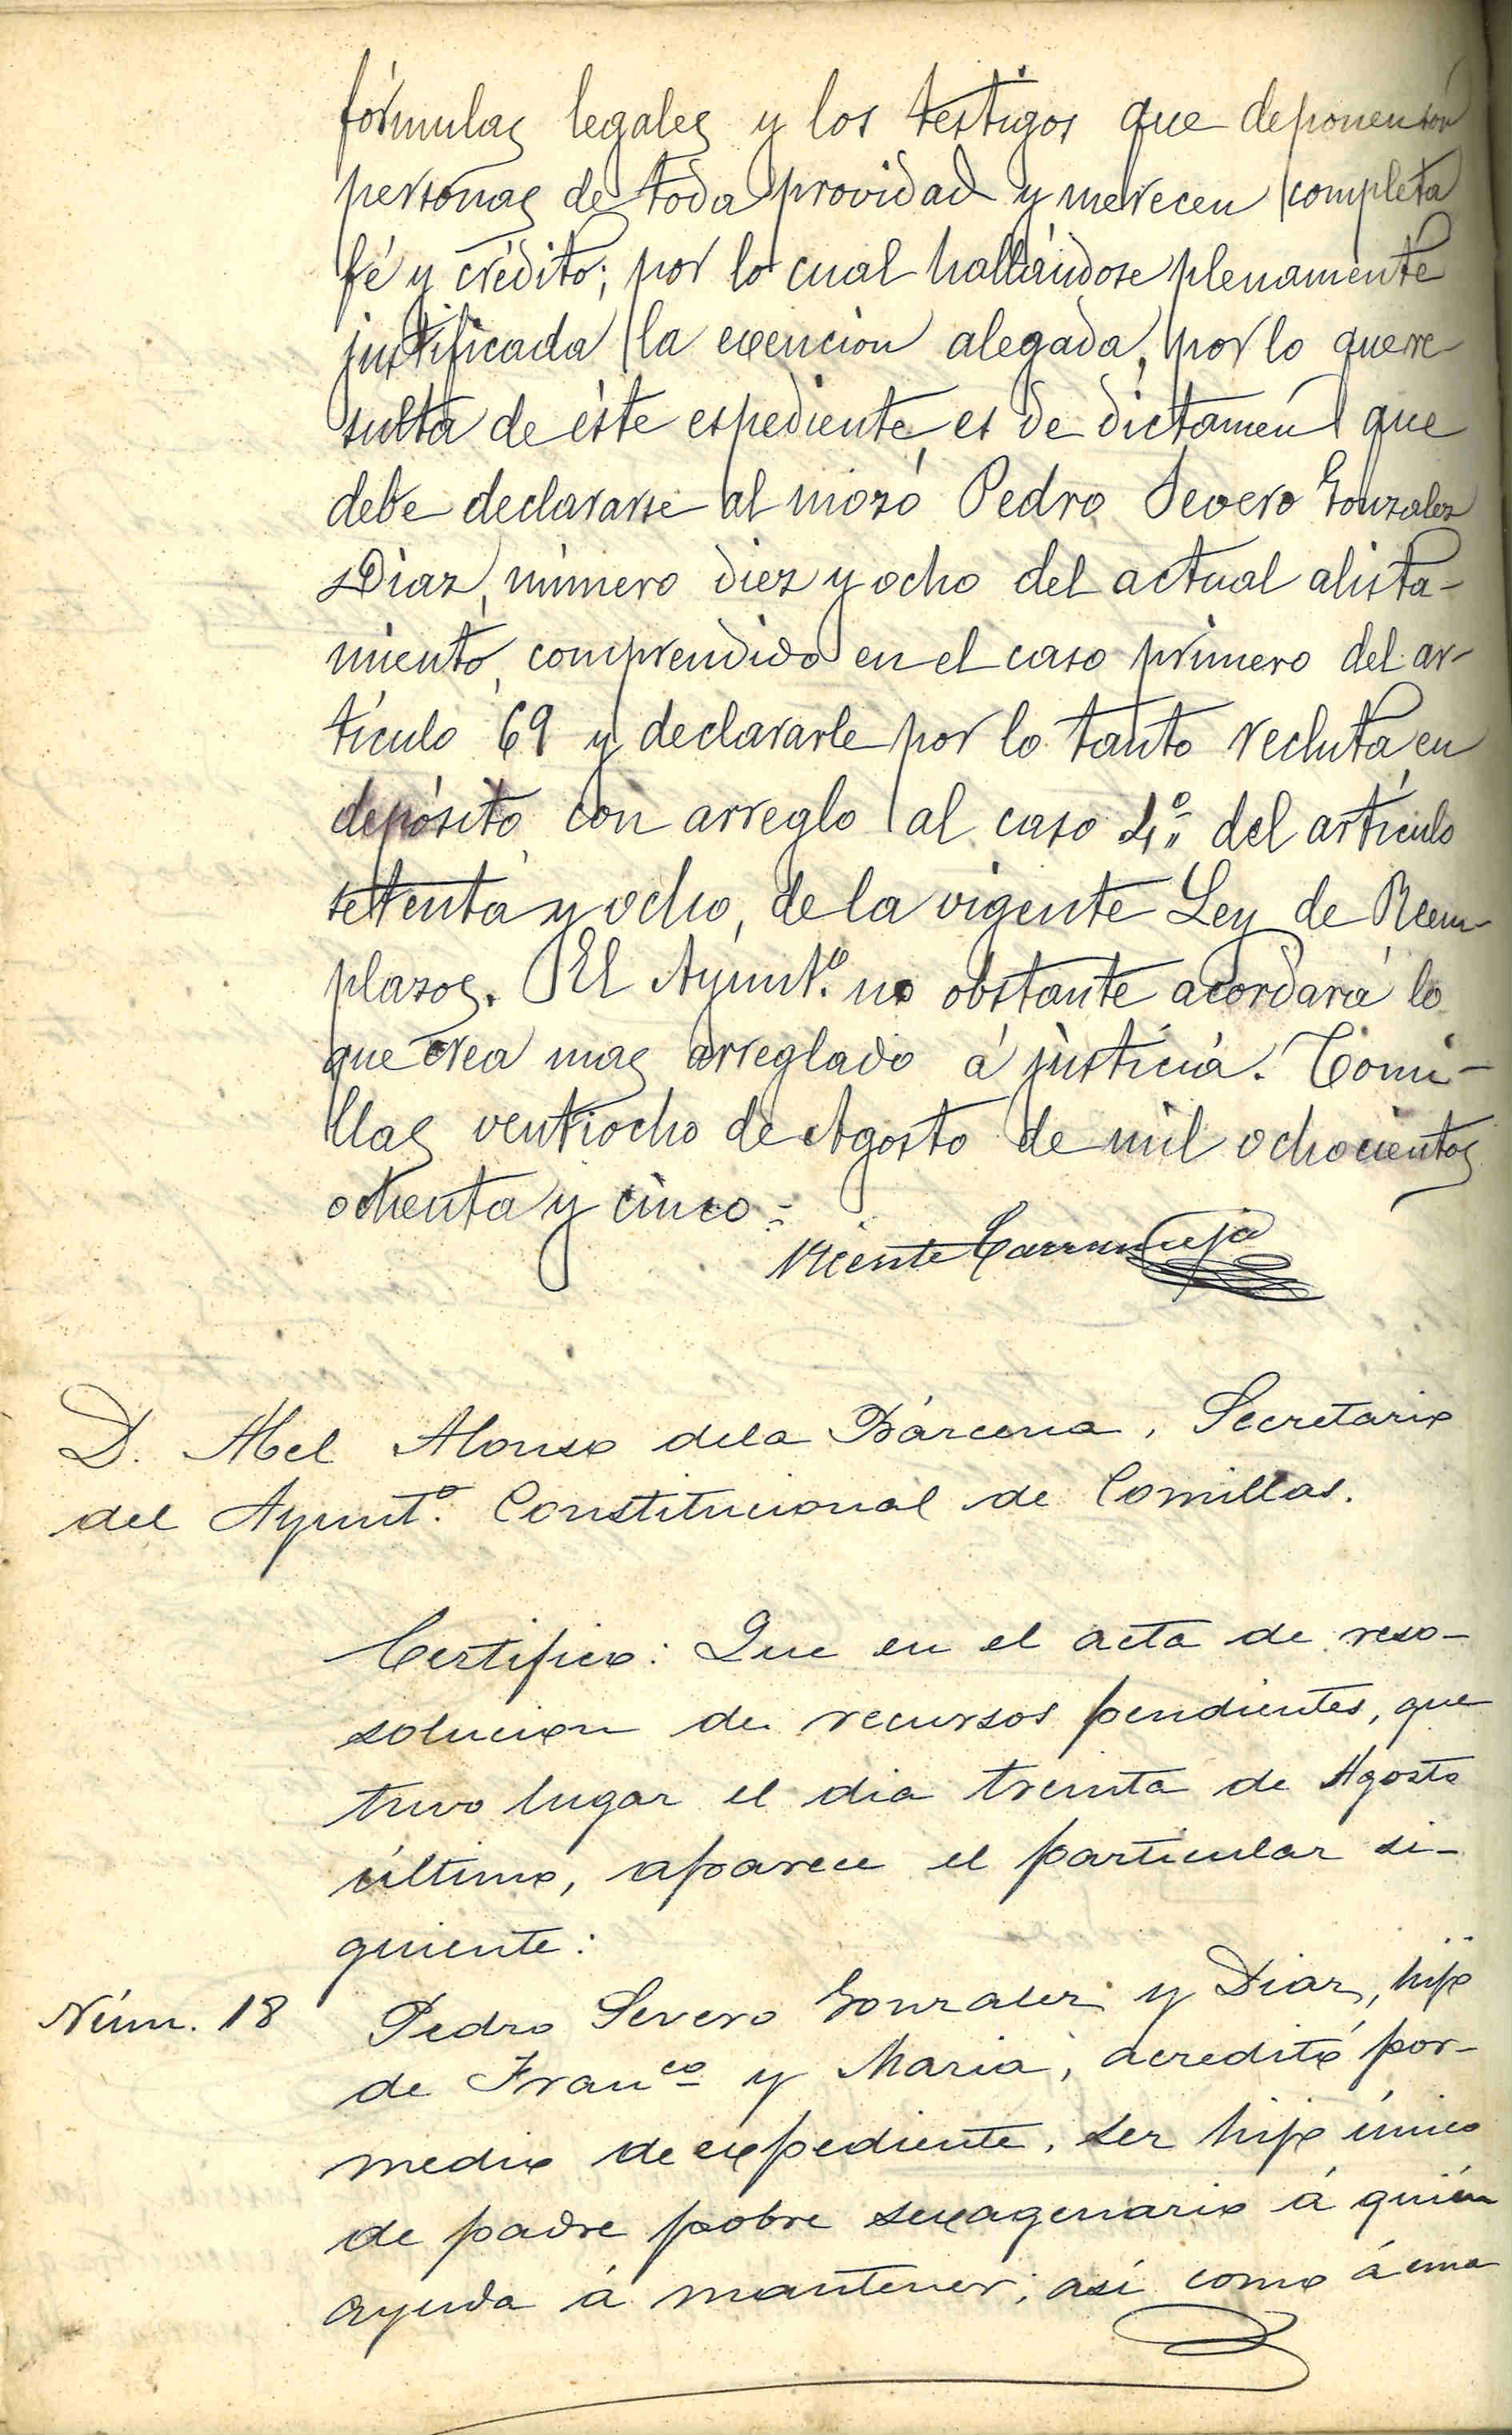 fórmulas legales y los testigos que deponen són
personas de toda providad y merecen completa
fé y crédito; por lo cual hallándose plenamente
justificada la exencion alegada, por lo que re-
sulta de éste espediente, es de dictamen que
debe declararse al mozo Pedro Severo Gonzalez
Diaz, número diez y ocho del actual alista-
miento, comprendido en el caso primero del ar-
tículo 69 y declararle por lo tanto recluta en
depósito con arreglo al caso 4.º del artículo
setenta y ocho, de la vigente Ley de Reem-
plazos. El Ayunt.º no obstante acordará lo
que crea mas arreglado á justicia. Comi-
llas ventiocho de Agosto de mil ochocientos
ochenta y cinco =
Vicente Carranceja
D. Abel Alonso de la Bárcena, Secretario
del Ayunt.º Constitucional de Comillas.
Certifico: Que en el acta de reso-
solucion de recursos pendientes, que
tuvo lugar el dia treinta de Agosto
último, aparece el particular si-
guiente:
Núm. 18 Pedro Severo Gonzalez y Diaz, hijo
de Fran.co y Maria, acreditó por-
medio de expediente, ser hijo único
de padre pobre sexagenario á quién
ayuda á mantener; así como á una